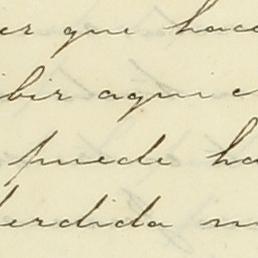 er que hace
ibir aqui e
puede ha
perdida n